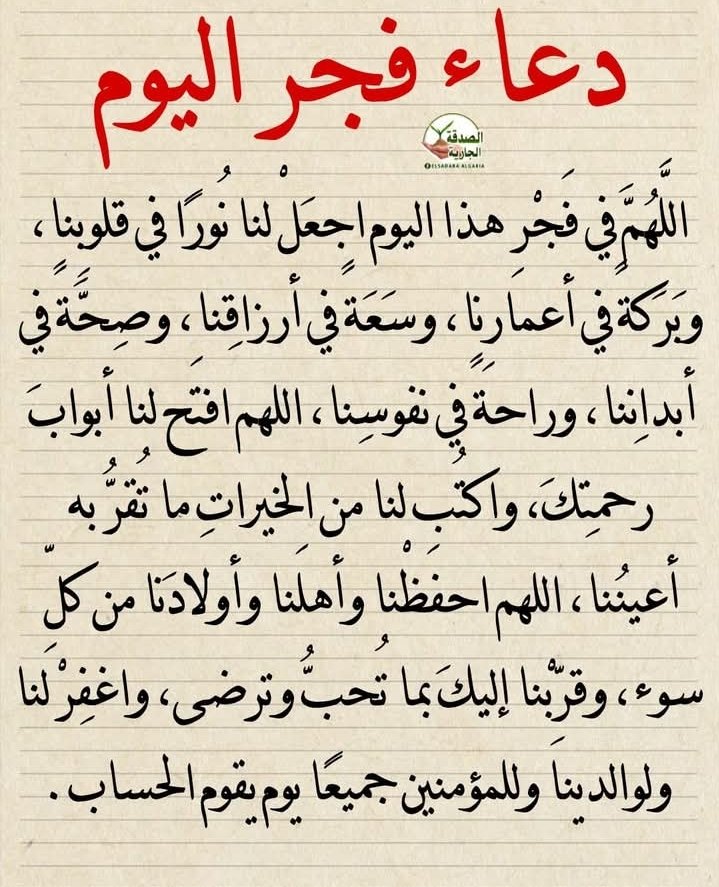 دعاء فجر اليوم
الصدقة
الجارية
ELSADAKA ALGARIA
اللَّهُمَّ في فَجْرِ هذا اليوم اجعَلْ لنا نُورًا في قلوبِنا،
وبَرَكةً في أعمارِنا، وسَعَةً في أرزاقِنا، وصِحَّةً في
أبدانِنا، وراحةً في نفوسِنا، اللهم افتح لنا أبوابَ
رحمتِكَ، واكتُب لنا من الخيراتِ ما تُقرُّ به
أعينُنا، اللهم احفَظْنا وأهلَنا وأولادَنا من كلِّ
سوء، وقرِّبْنا إليكَ بما تُحبُّ وترضى، واغفِرْ لَنا
ولوالدينا وللمؤمنين جميعًا يوم يقوم الحساب.